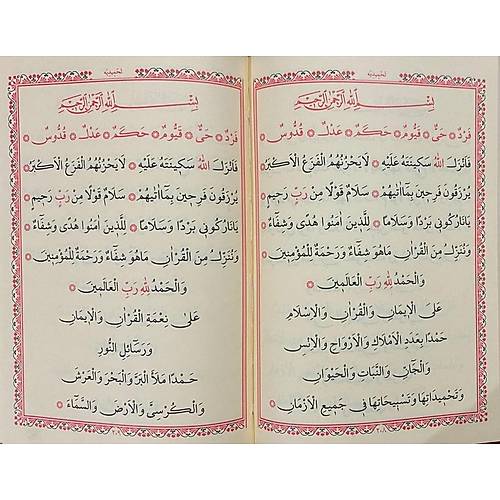 تحميديه
بِسْمِ اللهِ الرَّحْمٰنِ الرَّحِيمِ
فَرْدٌ ۞ حَىٌّ ۞ قَيُّومٌ ۞ حَكَمٌ ۞ عَدْلٌ ۞ قُدُّوسٌ ۞
فَاَنْزَلَ اللهُ سَكِينَتَهُ عَلَيْهِ ۞ لَا يَحْزُنُهُمُ الْفَزَعُ الْاَكْبَرُ ۞
يُرْزَقُونَ فَرِحِينَ بِمَٓا اٰتٰيهُمْ ۞ سَلَامٌ قَوْلًا مِنْ رَبٍّ رَحِيمٍ ۞
يَانَارُ كُونِى بَرْدًا وَسَلَامًا ۞ لِلَّذِينَ اٰمَنُوا هُدًى وَشِفَٓاءٌ ۞
وَنُنَزِّلُ مِنَ الْقُرْاٰنِ مَاهُوَ شِفَٓاءٌ وَرَحْمَةٌ لِلْمُؤْمِنِينَ ۞
وَالْحَمْدُ لِلّٰهِ رَبِّ الْعَالَمِينَ ۞
عَلَى الْاِيمَانِ وَالْقُرْاٰنِ وَالْاِسْلَامِ
حَمْدًا بِعَدَدِ الْاَمْلَاكِ وَالْاَرْوَاحِ وَالْاِنْسِ
وَالْجَانِّ وَالنَّبَاتِ وَالْحَيْوَانِ
وَتَحْمِيدَاتِهَا وَتَسْبِيحَاتِهَا فِى جَمِيعِ الْاَزْمَانِ ۞
تحميديه
بِسْمِ اللهِ الرَّحْمٰنِ الرَّحِيمِ
فَرْدٌ ۞ حَىٌّ ۞ قَيُّومٌ ۞ حَكَمٌ ۞ عَدْلٌ ۞ قُدُّوسٌ ۞
فَاَنْزَلَ اللهُ سَكِينَتَهُ عَلَيْهِ ۞ لَا يَحْزُنُهُمُ الْفَزَعُ الْاَكْبَرُ ۞
يُرْزَقُونَ فَرِحِينَ بِمَٓا اٰتٰيهُمْ ۞ سَلَامٌ قَوْلًا مِنْ رَبٍّ رَحِيمٍ ۞
يَانَارُ كُونِى بَرْدًا وَسَلَامًا ۞ لِلَّذِينَ اٰمَنُوا هُدًى وَشِفَٓاءٌ ۞
وَنُنَزِّلُ مِنَ الْقُرْاٰنِ مَاهُوَ شِفَٓاءٌ وَرَحْمَةٌ لِلْمُؤْمِنِينَ ۞
وَالْحَمْدُ لِلّٰهِ رَبِّ الْعَالَمِينَ ۞
عَلَى نِعْمَةِ الْقُرْاٰنِ وَالْاِيمَانِ
وَرَسَٓائِلِ النُّورِ
حَمْدًا مِلْاَ الْبَرِّ وَالْبَحْرِ وَالْعَرْشِ
وَالْكُرْسِىِّ وَالْاَرْضِ وَالسَّمَٓاءِ ۞